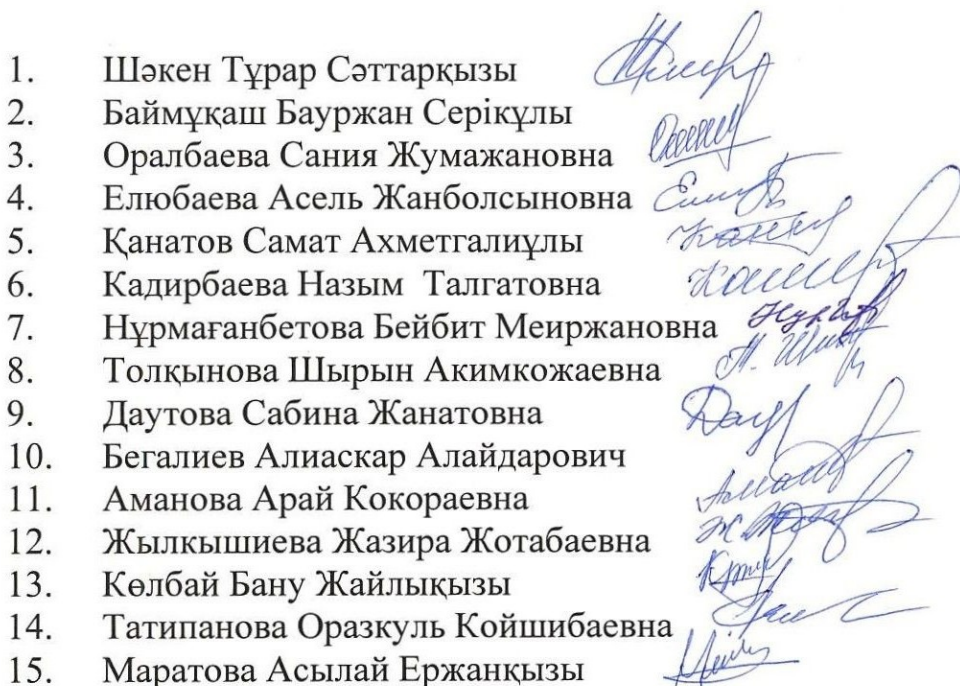 1. Шәкен Тұрар Сәттарқызы
2. Баймұқаш Бауржан Серікұлы
3. Оралбаева Сания Жумажановна
4. Елюбаева Асель Жанболсыновна
5. Қанатов Самат Ахметгалиұлы
6. Кадирбаева Назым Талгатовна
7. Нұрмағанбетова Бейбит Меиржановна
8. Толқынова Шырын Акимкожаевна
9. Даутова Сабина Жанатовна
10. Бегалиев Алиаскар Алайдарович
11. Аманова Арай Кокораевна
12. Жылкышиева Жазира Жотабаевна
13. Көлбай Бану Жайлықызы
14. Татипанова Оразкуль Койшибаевна
15. Маратова Асылай Ержанқызы